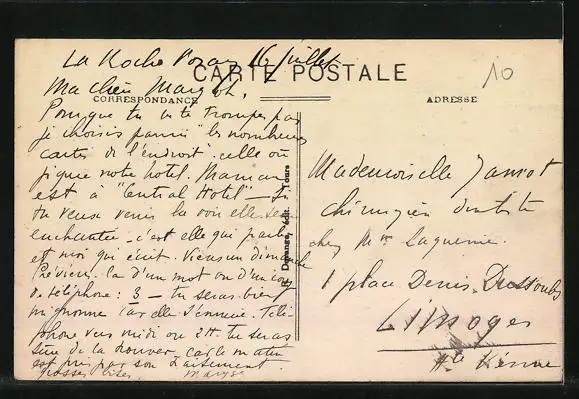 La Roche Posay 16 juillet
CARTE POSTALE
10
Ma chère Margot,
CORRESPONDANCE
ADRESSE
Pour que tu ne te trompes pas
je choisis parmi "les nombreuses
cartes de l'endroit" celle où
figure notre hôtel. Maman
est à "Central Hotel" — Si
tu veux venir la voir elle sera
enchantée — c'est elle qui parle
et moi qui écris. Viens un dimanche
Préviens la d'un mot ou d'un coup
de téléphone : 3 — tu seras bien
mignonne car elle s'ennuie. Télé-
phone vers midi ou 2H. tu seras
sûre de la trouver car le matin
est pris par son traitement.
grosses bises.
Mademoiselle
chirurgien dentiste
chez Mme
1 place Denis Dussoubs
Limoges
Hte Vienne
édit. Tours